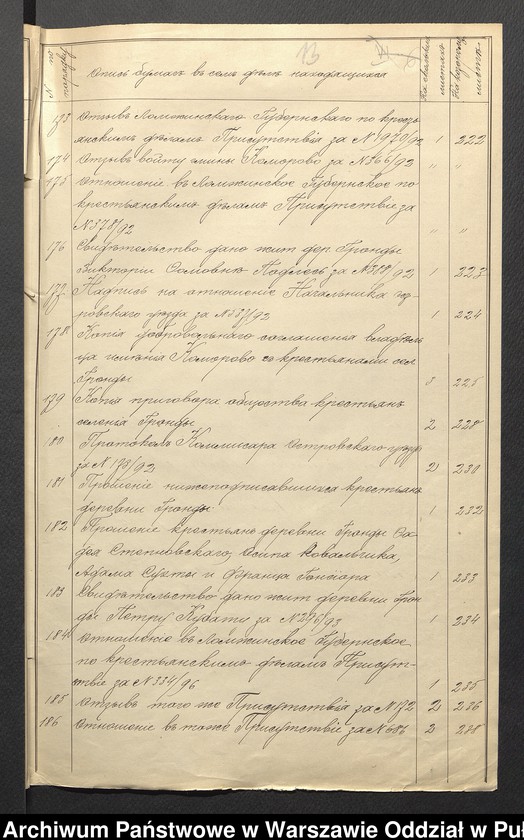 № по порядку
Опись бумагъ въ семъ дѣлѣ находящихся
На сколькихъ листахъ
На которомъ листѣ
173 Отзывъ Ломжинскаго Губернскаго по кресть-
янскимъ дѣламъ Присутствія за №1970/92 1 222
174 Отзывъ войту гмины Коморово за №366/92 " "
175 Отношеніе въ Ломжинское Губернское по
крестьянскимъ дѣламъ Присутствіе за
№378/92 " "
176 Свидѣтельство дано жит. дер. Гронды
Викторіи за №318/92 1 223
177 Надпись на отношеніе Начальника
уѣзда за №337/92 1 224
178 Копія добровольнаго соглашенія владѣль
ца имѣнія Коморово съ крестьянами сел.
Гронды 3 225
179 Копія приговора общества крестьянъ
селенія Гронды 2 228
180 Протоколъ Коммисара Островскаго уѣзда
за №173/92 2 230
181 Прошеніе нижеподписавшихся крестьянъ
деревни Гронды 1 232
182 Прошеніе крестьянъ деревни Гронды
Степновскаго, Осипа Ковальчика,
Адама Сухты и Франца Гонсіора 1 233
183 Свидѣтельство дано жит. деревни Грон
ды Петру за №296/93 1 234
184 Отношеніе въ Ломжинское Губернское
по крестьянскимъ дѣламъ Присут-
ствіе за №334/96 1 235
185 Отзывъ того же Присутствія за №172 2 236
186 Отношеніе въ тоже Присутствіе за №686 2 238
Archiwum Państwowe w Warszawie Oddział w Puł